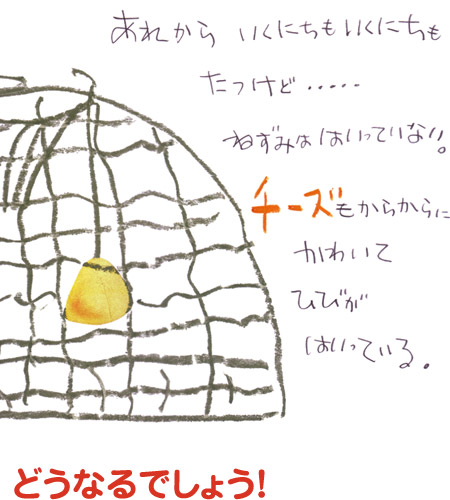 あれから いくにちもいくにちも
たつけど・・・・・
ねずみは はいっていない。
チーズもからからに
かわいて
ひびが
はいっている。
どうなるでしょう!